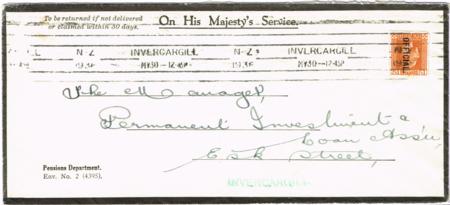 To be returned if not delivered
or claimed within 30 days.
On His Majesty's Service.
N-Z INVERCARGILL N-Z INVERCARGILL
OFFICIAL
The Manager,
Permanent Investment &
Loan Ass'n,
Esk Street,
Pensions Department.
Env. No. 2 (4395).
INVERCARGILL